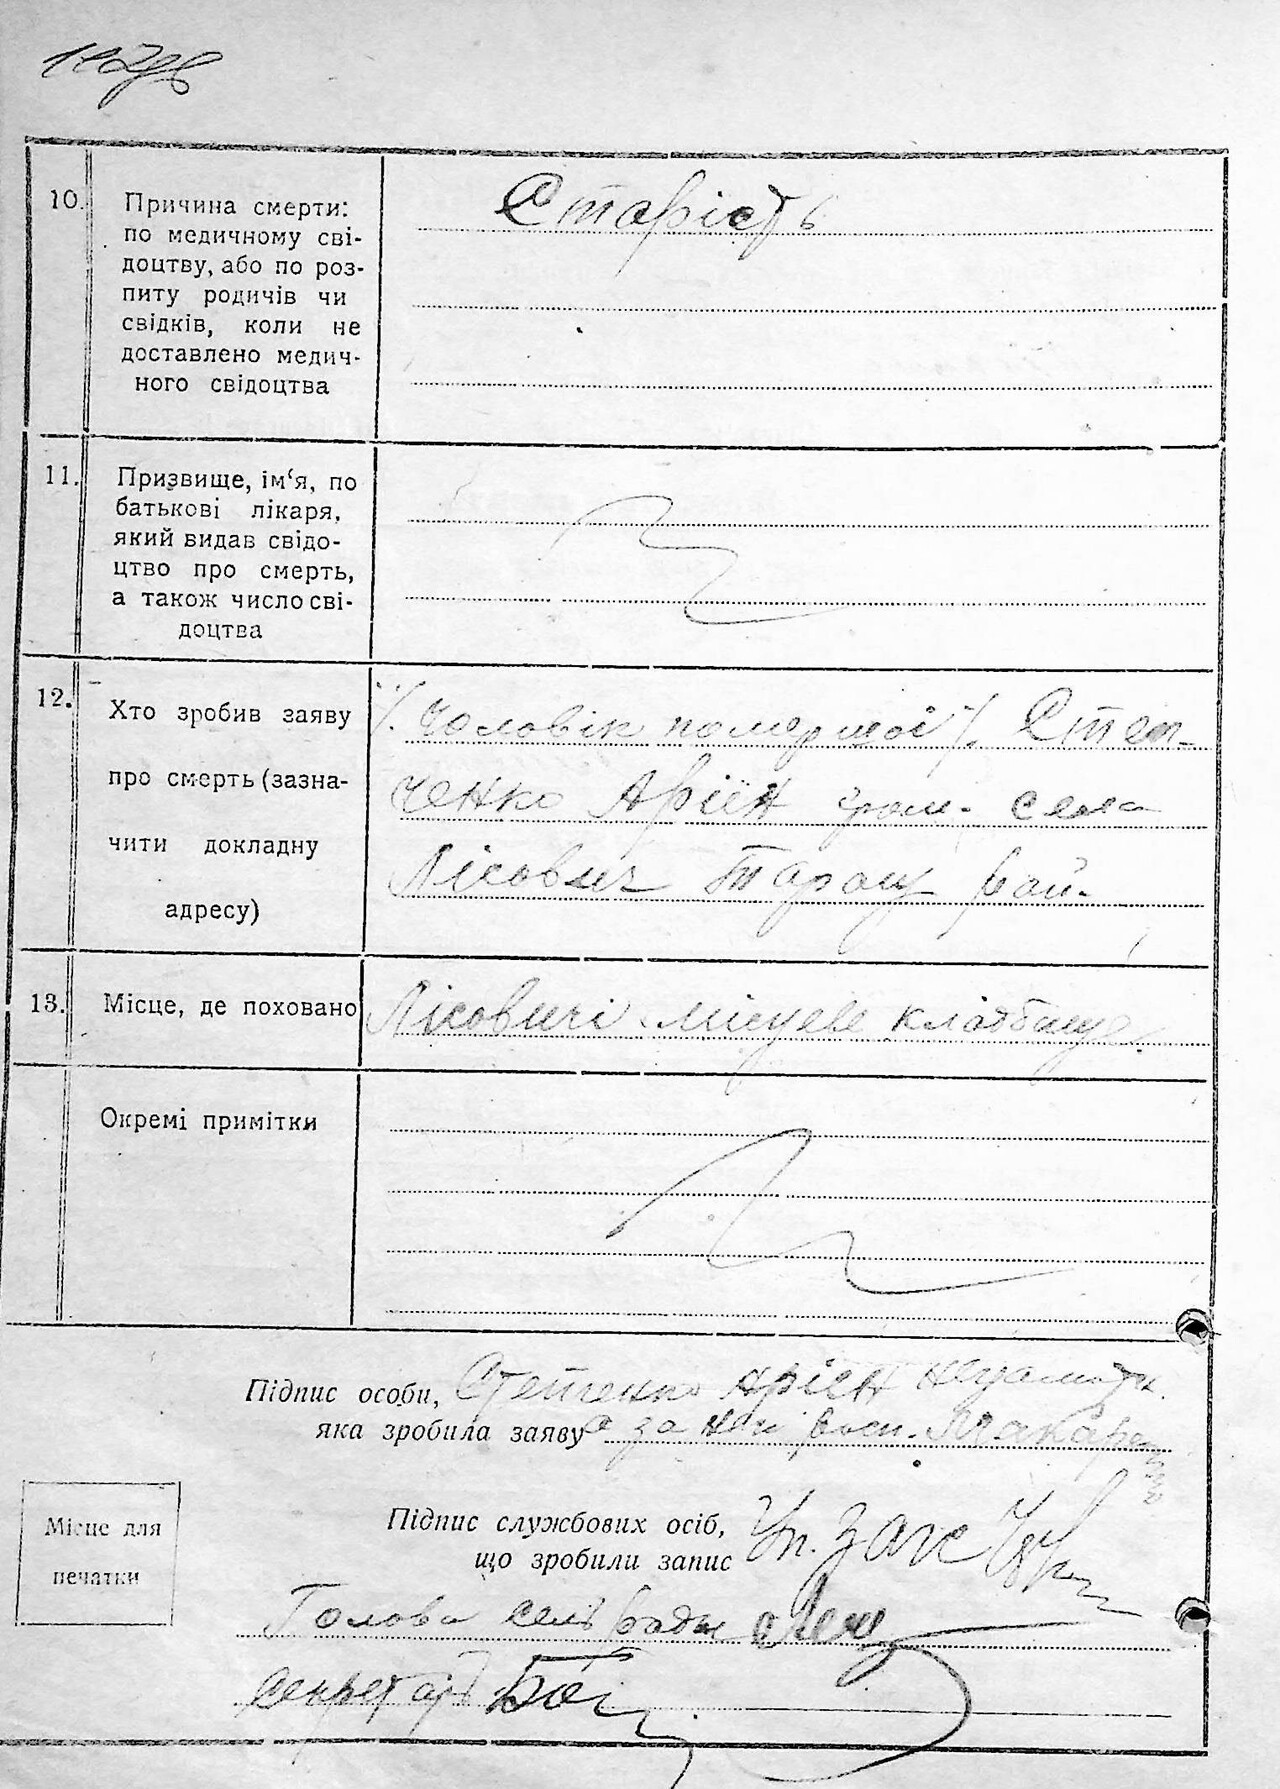 10.
Причина смерти:
по медичному сві-
доцтву, або по роз-
питу родичів чи
свідків, коли не
доставлено медич-
ного свідоцтва
Старість
11.
Призвище, ім‘я, по
батькові лікаря,
який видав свідо-
цтво про смерть,
а також число сві-
доцтва
12.
Хто зробив заяву
про смерть (зазна-
чити докладну
адресу)
/. Чоловік помершої /.
ченко Арієн гром. села
Лісович Таращ рай.
13.
Місце, де поховано
Лісовичі місцеве кладбище.
Окремі примітки
Підпис особи,
яка зробила заяву
Арієн
за неї росп.
Місце для
печатки
Підпис службових осіб,
що зробили запис
Уп. Загс
Голова сельради
Секретарь